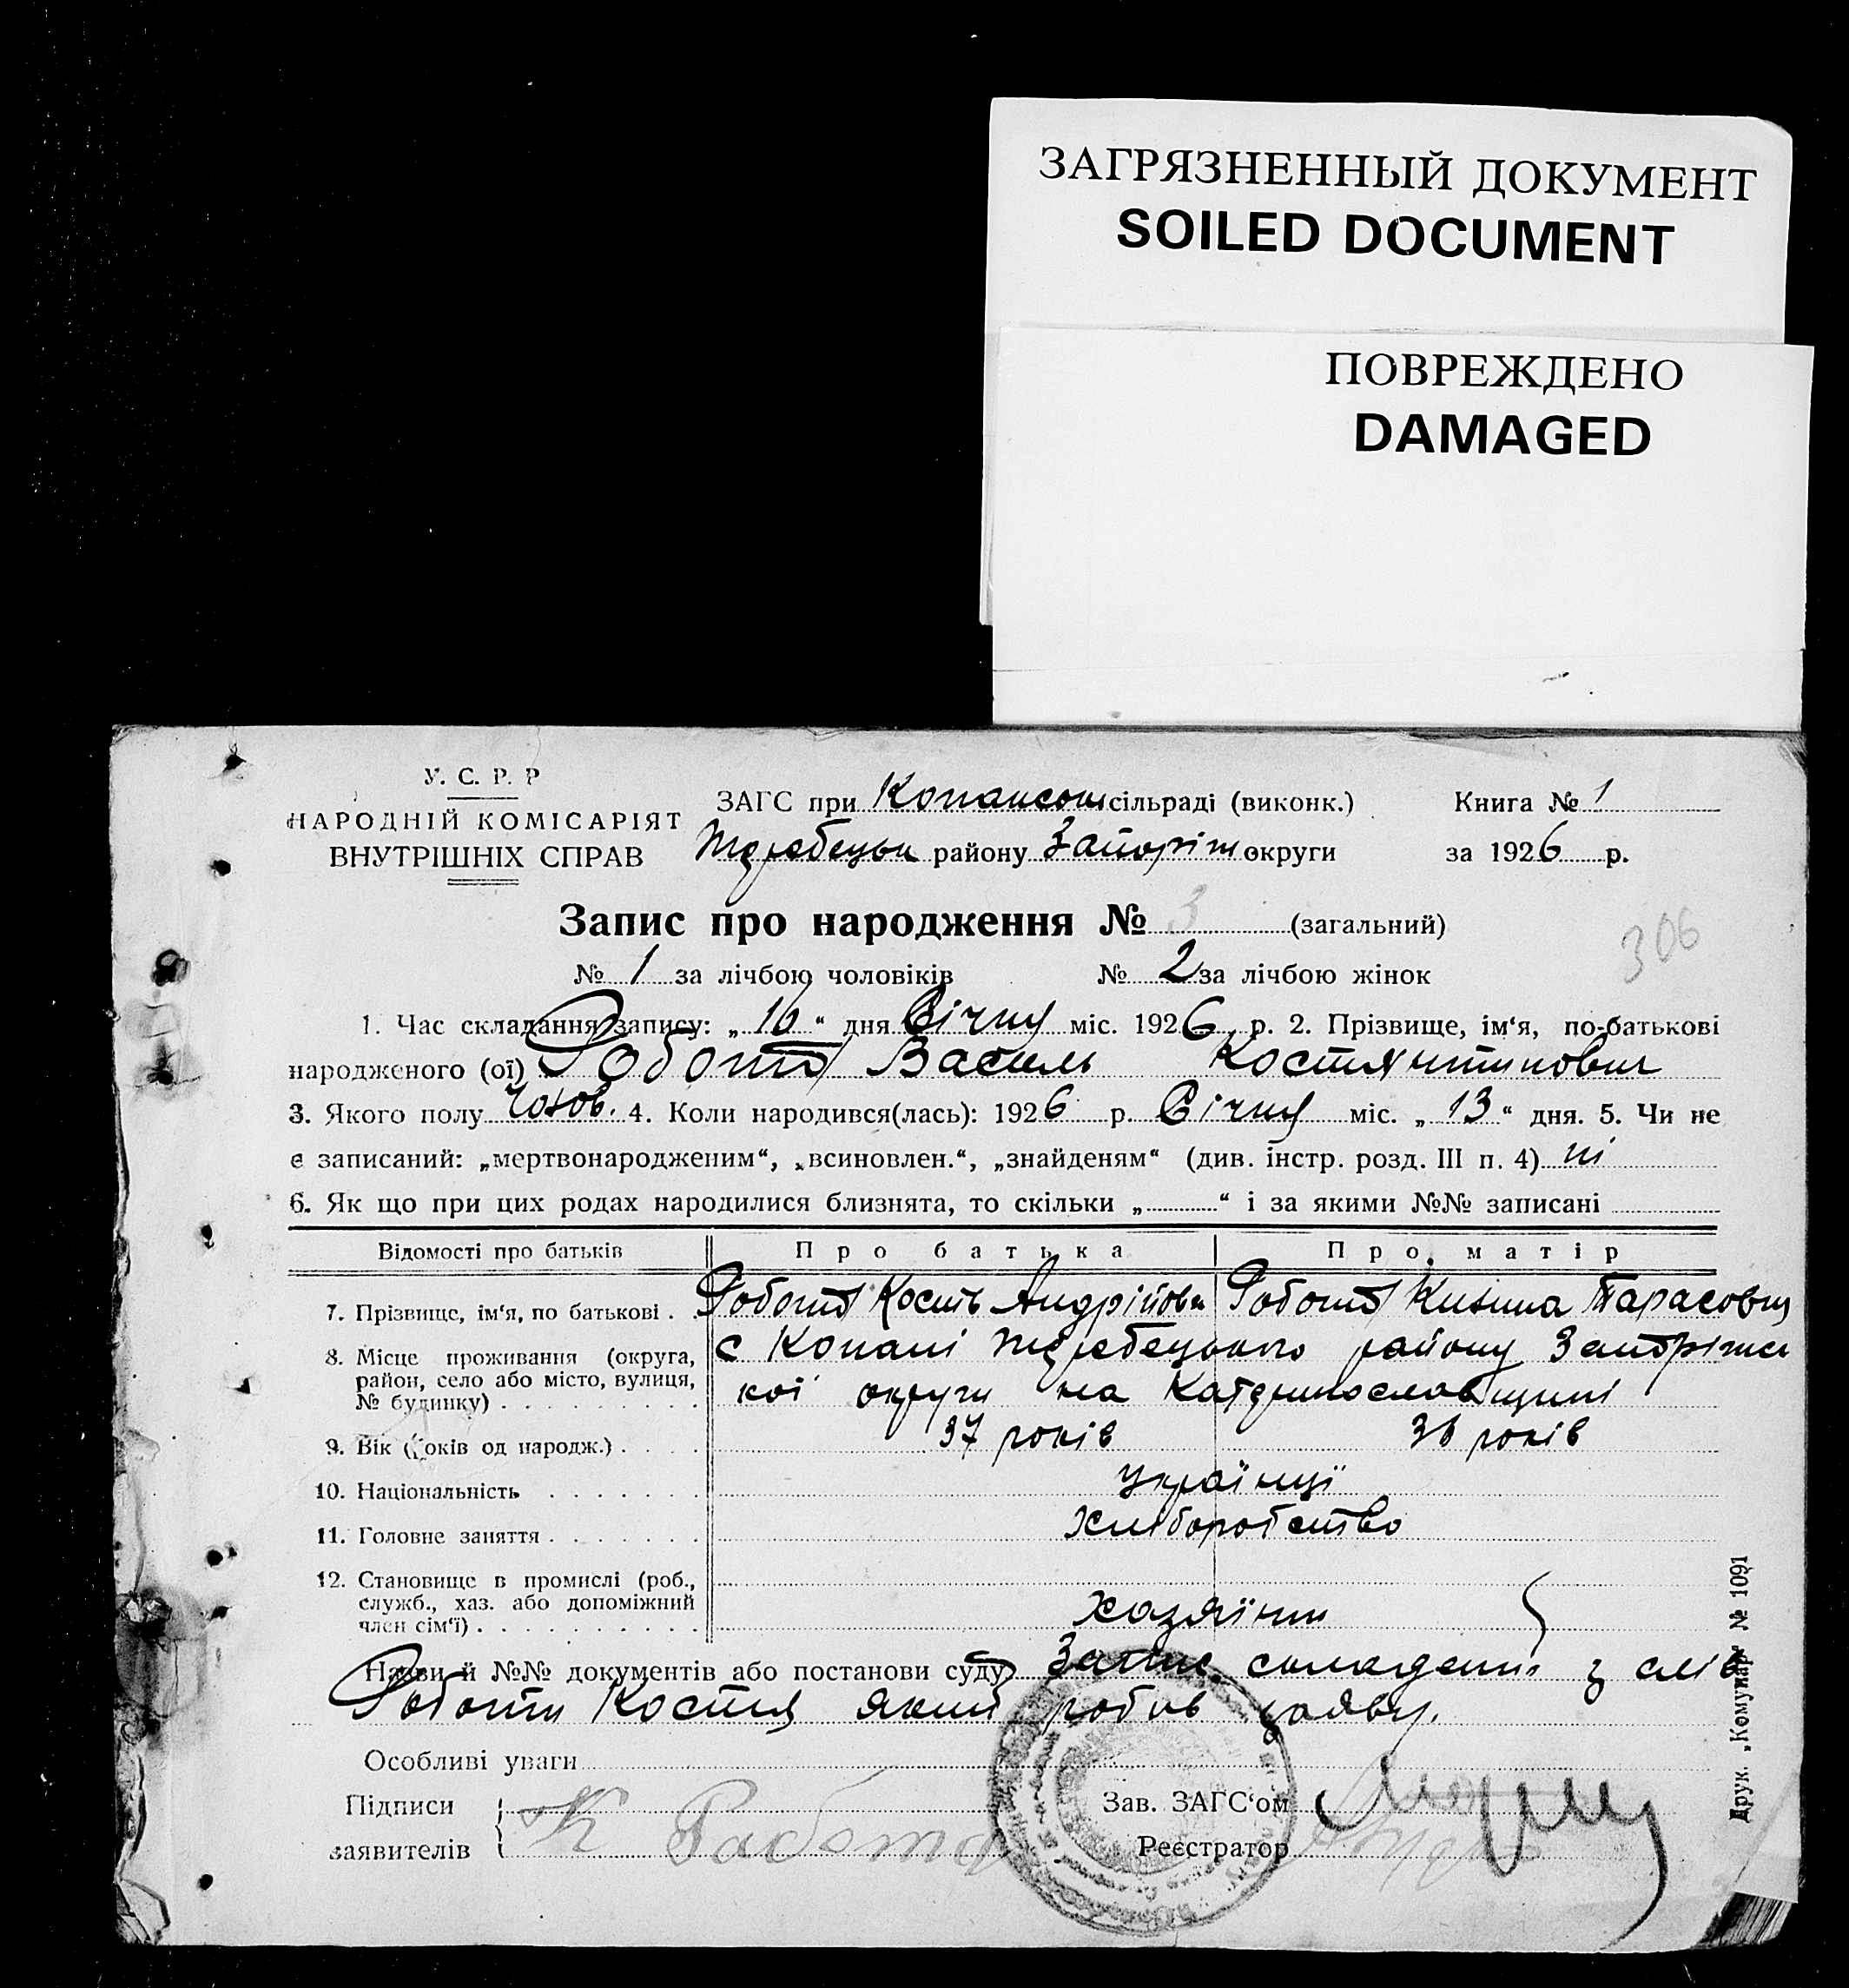 ЗАГРЯЗНЕННЫЙ ДОКУМЕНТ
SOILED DOCUMENT
ПОВРЕЖДЕНО
DAMAGED
У. С. Р. Р
НАРОДНІЙ КОМІСАРІЯТ
ВНУТРІШНІХ СПРАВ
ЗАГС при Копанськ сільраді (виконк.)
району Запоріж округи
Книга № 1
за 1926 р.
Запис про народження № 3 (загальний)
306
№ 1 за лічбою чоловіків № 2 за лічбою жінок
1. Час складання запису: „16“ дня Січня міс. 1926 р. 2. Прізвище, ім‘я, по-батькові
народженого (ої) Робота Василь Костянтинович
3. Якого полу Чолов. 4. Коли народився(лась): 1926 р. Січня міс. „13“ дня. 5. Чи не
є записаний: „мертвонародженим“, „всиновлен.“, „знайденям“ (див. інстр. розд. III п. 4) ні
6. Як що при цих родах народилися близнята, то скільки „ “ і за якими №№ записані
Відомості про батьків Про батька Про матір
7. Прізвище, ім‘я, по батькові . . Робота Кость Андрійов Робота Тарасовна
8. Місце проживання (округа, район, село або місто, вулиця, № будинку)
с Копані району Запоріжсь
кої округи на Катеринославщині
9. Вік (років од народж.) . . . . 37 років 36 років
10. Національність . . . . . . . Українці
11. Головне заняття . . . . . . . Хліборобство
12. Становище в промислі (роб., служб., хаз. або допоміжний член сім‘ї) . . . . . . . . . .
Хазяїни
Назви й №№ документів або постанови суду Запис складений з слів
Роботи Костя який робив заяву.
Особливі уваги
Підписи
заявителів
К Работа
Зав. ЗАГС‘ом
Реєстратор
Друк. „Комунар“ № 1091